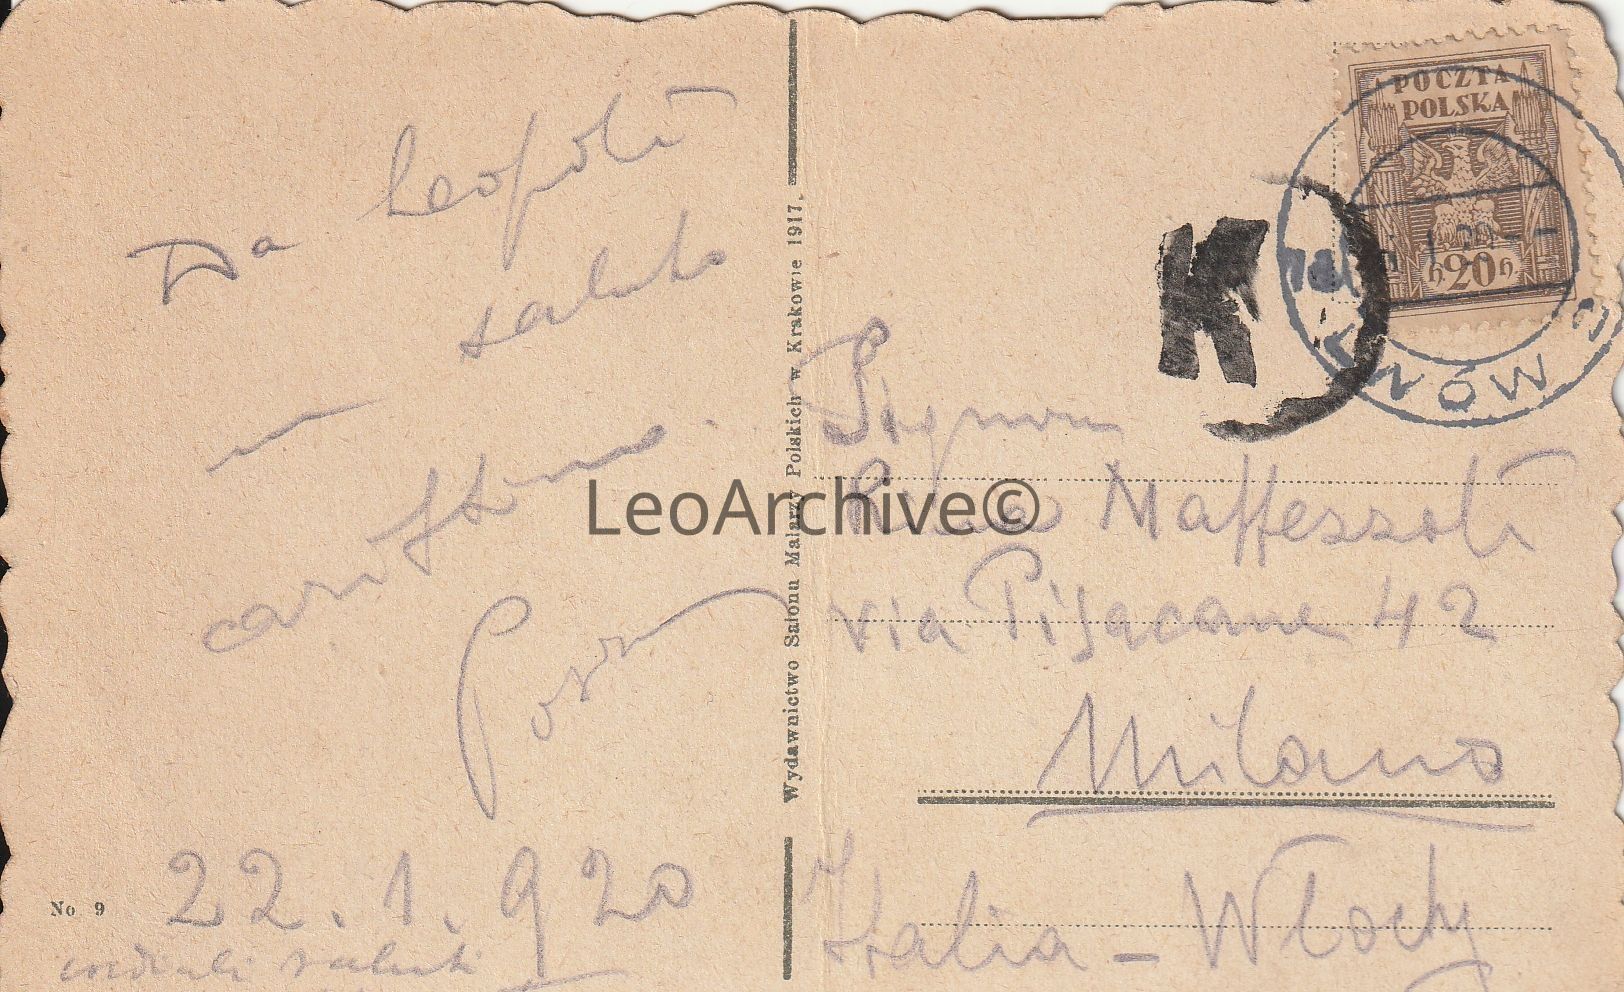 Da Leopoli
saluto
carissimo
22.1.920
cordiali saluti
No 9
Wydawnictwo Salonu Malarzy Polskich w Krakowie 1917.
POCZTA
POLSKA
h 20 h
LWÓW
K
Maffezzoli
via Pisacane 42
Milano
Italia - Włochy
LeoArchive©